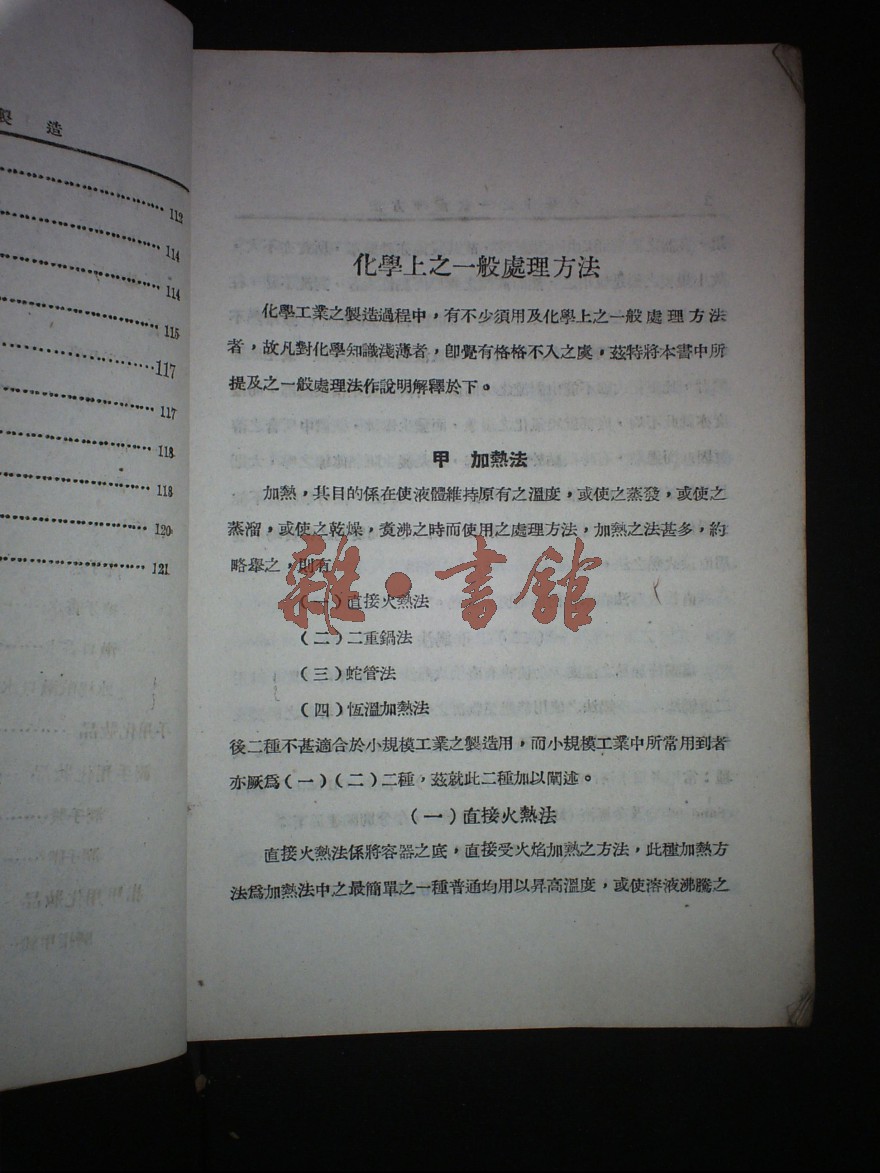 製造
112
114
114
115
117
117
118
118
120
121
化學上之一般處理方法
化學工業之製造過程中，有不少須用及化學上之一般處理方法
者，故凡對化學知識淺薄者，卽覺有格格不入之處，茲特將本書中所
提及之一般處理法作說明解釋於下。
甲　加熱法
加熱，其目的係在使液體維持原有之溫度，或使之蒸發，或使之
蒸溜，或使之乾燥，煑沸之時而使用之處理方法，加熱之法甚多，約
略舉之，則有
雜·書館
（一）直接火熱法
（二）二重鍋法
（三）蛇管法
（四）恆溫加熱法
後二種不甚適合於小規模工業之製造用，而小規模工業中所常用到者
亦厥爲（一）（二）二種，茲就此二種加以闡述。
（一）直接火熱法
直接火熱法係將容器之底，直接受火焰加熱之方法，此種加熱方
法爲加熱法中之最簡單之一種普通均用以昇高溫度，或使溶液沸騰之